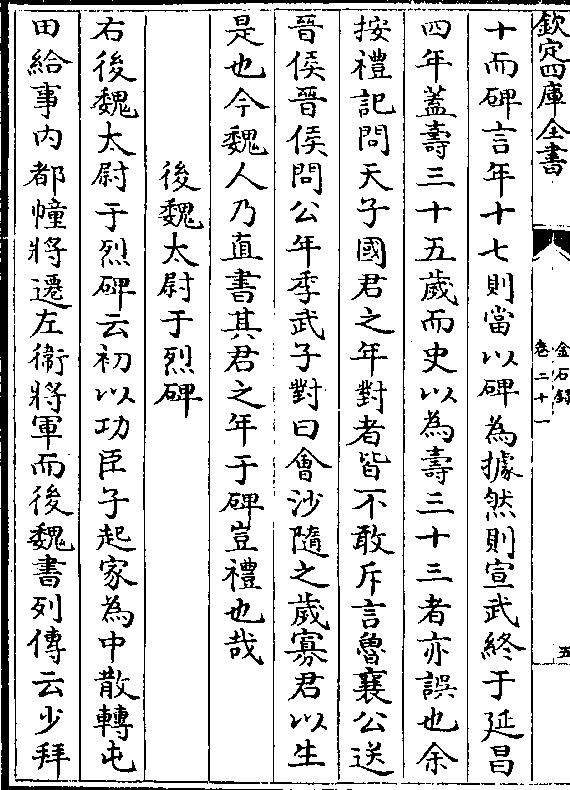 欽定四庫全書
金石錄
卷二十一
五
十而碑言年十七則當以碑為據然則宣武終于延昌
四年蓋壽三十五歲而史以為壽三十三者亦誤也余
按禮記問天子國君之年對者皆不敢斥言魯襄公送
晉侯晉侯問公年季武子對曰會沙隨之歲寡君以生
是也今魏人乃直書其君之年于碑豈禮也哉
後魏太尉于烈碑
右後魏太尉于烈碑云初以功臣子起家為中散轉屯
田給事內都幢將遷左衞將軍而後魏書列傳云少拜